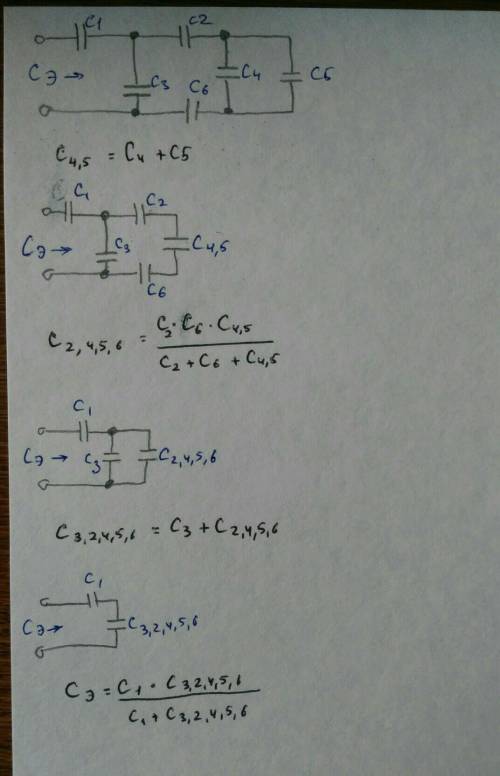 C1 C2
Cэ → C3 C6 C4 C5
C4,5 = C4 + C5
C1 C2
Cэ → C3 C4,5
C6
C2,4,5,6 = C2 · C6 · C4,5 / C2 + C6 + C4,5
C1
Cэ → C3 C2,4,5,6
C3,2,4,5,6 = C3 + C2,4,5,6
C1
Cэ → C3,2,4,5,6
Cэ = C1 · C3,2,4,5,6 / C1 + C3,2,4,5,6